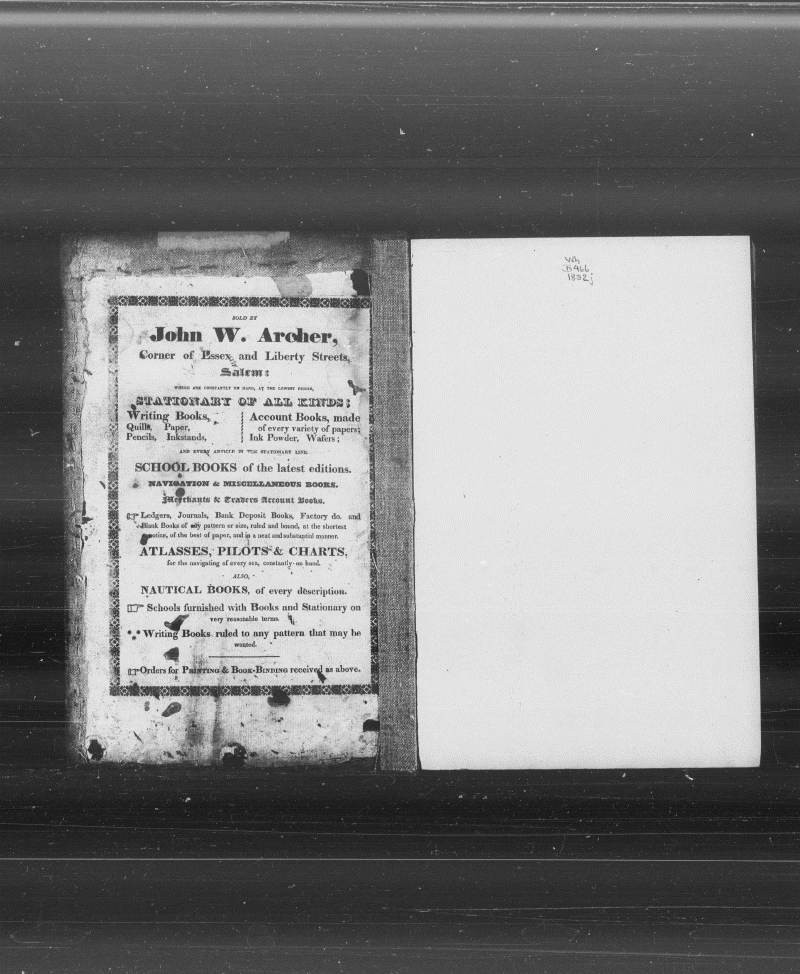 SOLD BY
John W. Archer,
Corner of Essex and Liberty Streets,
Salem:
WHERE ARE CONSTANTLY ON HAND, AT THE LOWEST PRICES,
STATIONARY OF ALL KINDS;
Writing Books,
Quills, Paper,
Pencils, Inkstands,
Account Books, made
of every variety of papers;
Ink Powder, Wafers;
AND EVERY ARTICLE IN THE STATIONARY LINE.
SCHOOL BOOKS of the latest editions.
NAVIGATION & MISCELLANEOUS BOOKS.
Merchants & Traders Account Books.
☞Ledgers, Journals, Bank Deposit Books, Factory do. and
Blank Books of any pattern or size, ruled and bound, at the shortest
notice, of the best of paper, and in a neat and substantial manner.
ATLASSES, PILOTS & CHARTS,
for the navigating of every sea, constantly on hand.
ALSO,
NAUTICAL BOOKS, of every description.
☞ Schools furnished with Books and Stationary on
very reasonable terms.
Writing Books ruled to any pattern that may be
wanted.
☞Orders for PRINTING & BOOK-BINDING received as above.
Wh
B466
1832j